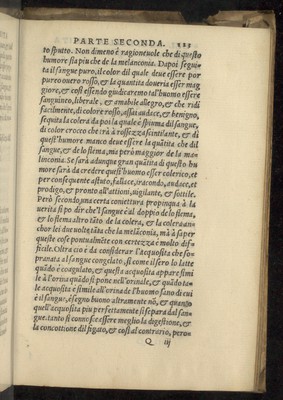 PARTE SECONDA. 123
to sputto. Non dimeno è ragioneuole che di questo
humore sia piu che de la melanconia. Dapoi segui-
ta il sangue puro, il color dil quale deue essere por
pureo ouero rosso, et la quantita doueria esser mag
giore, et così essendo giudicaremo tal'huomo essere
sanguineo, liberale, et amabile allegro, et che ridi
facilmente, di colore rosso, assai audace, et benigno,
seguita la colera da poi la quale è spiuma dil sangue,
di color croceo che tra à rossezza scintilante, et di
quest'humore manco deue essere la quãtita che dil
sangue, et de lo flema, mà però maggior de la me-
linconia. Se sarà adunque gran quãtita di questo hu
more sarà da credere quest'huomo esser colerico, et
per consequente astuto, fallace, iracondo, audace, et
prodigo, et pronto all'attioni, vigilante, et sottile.
Però secondo, una certa coniettura propinqua à la
uerità si pò dir che'l sangue è al doppio de lo flema,
et lo flema altro tãto de la colera, et la colera an-
chor lei due uolte tãta che la melãconia, mà à saper
queste cose pontualmẽte con certezza è molto dif-
ficile. Oltra ciò è da considerar l'acquosita che so-
pranata al sangue congelato, si come il sero lo latte
quãdo è coagulato, et questa acquosita appare simi
le à l'orina quãdo si pone nell'orinale, et quãdo ta-
le acquosita è simile all'orina de l'huomo sano di cui
è il sangue, è segno buono altramente nò, et quanto
quell'acquosita piu perfettamente si separa dal san-
gue, tanto si conosce essere meglio la digestione, et
la concottione dil figato, et così al contrario, però-
Q iij